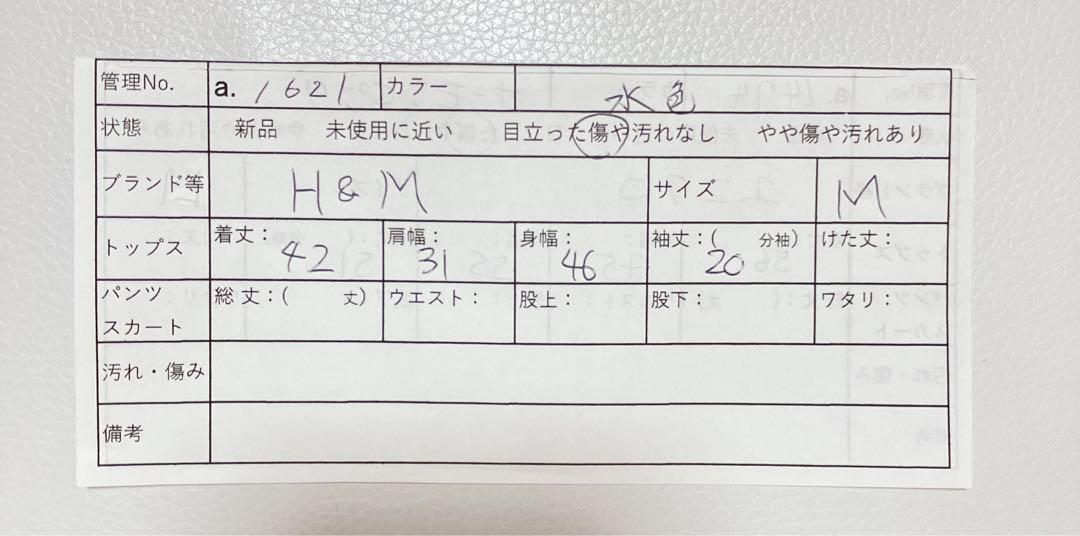 管理No. a. 1621 カラー 水色
状態 新品 未使用に近い 目立った傷や汚れなし やや傷や汚れあり
ブランド等 H&M サイズ M
トップス 着丈： 42 肩幅： 31 身幅： 46 袖丈：( 分袖) 20 けた丈：
パンツ スカート 総丈：( 丈) ウエスト： 股上： 股下： ワタリ：
汚れ・傷み
備考